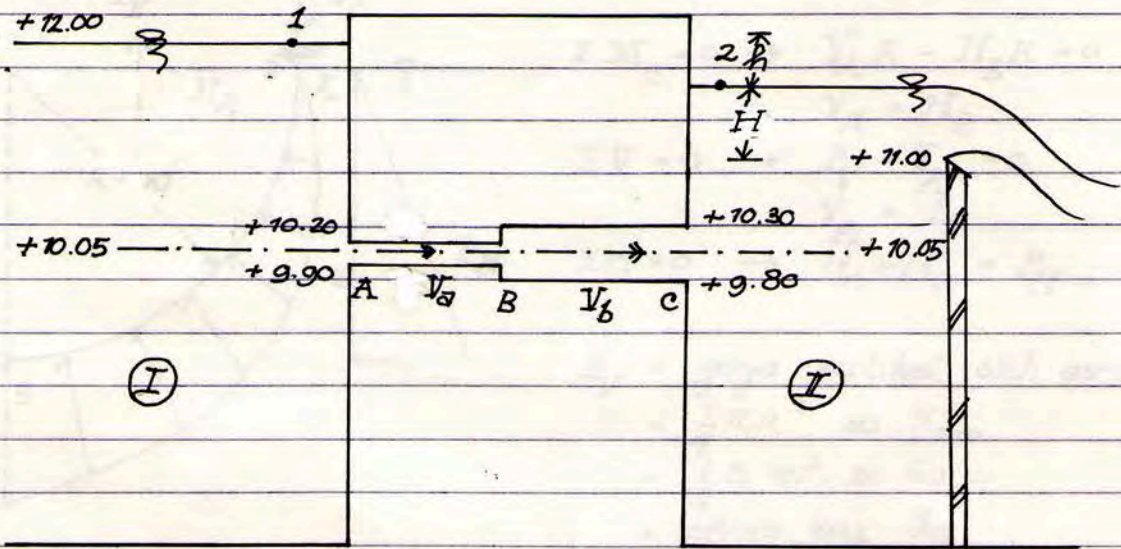 +12.00
1
2
h
H
+11.00
+10.20
+10.30
+10.05
+10.05
+9.90
+9.80
A
Va
B
Vb
C
I
II